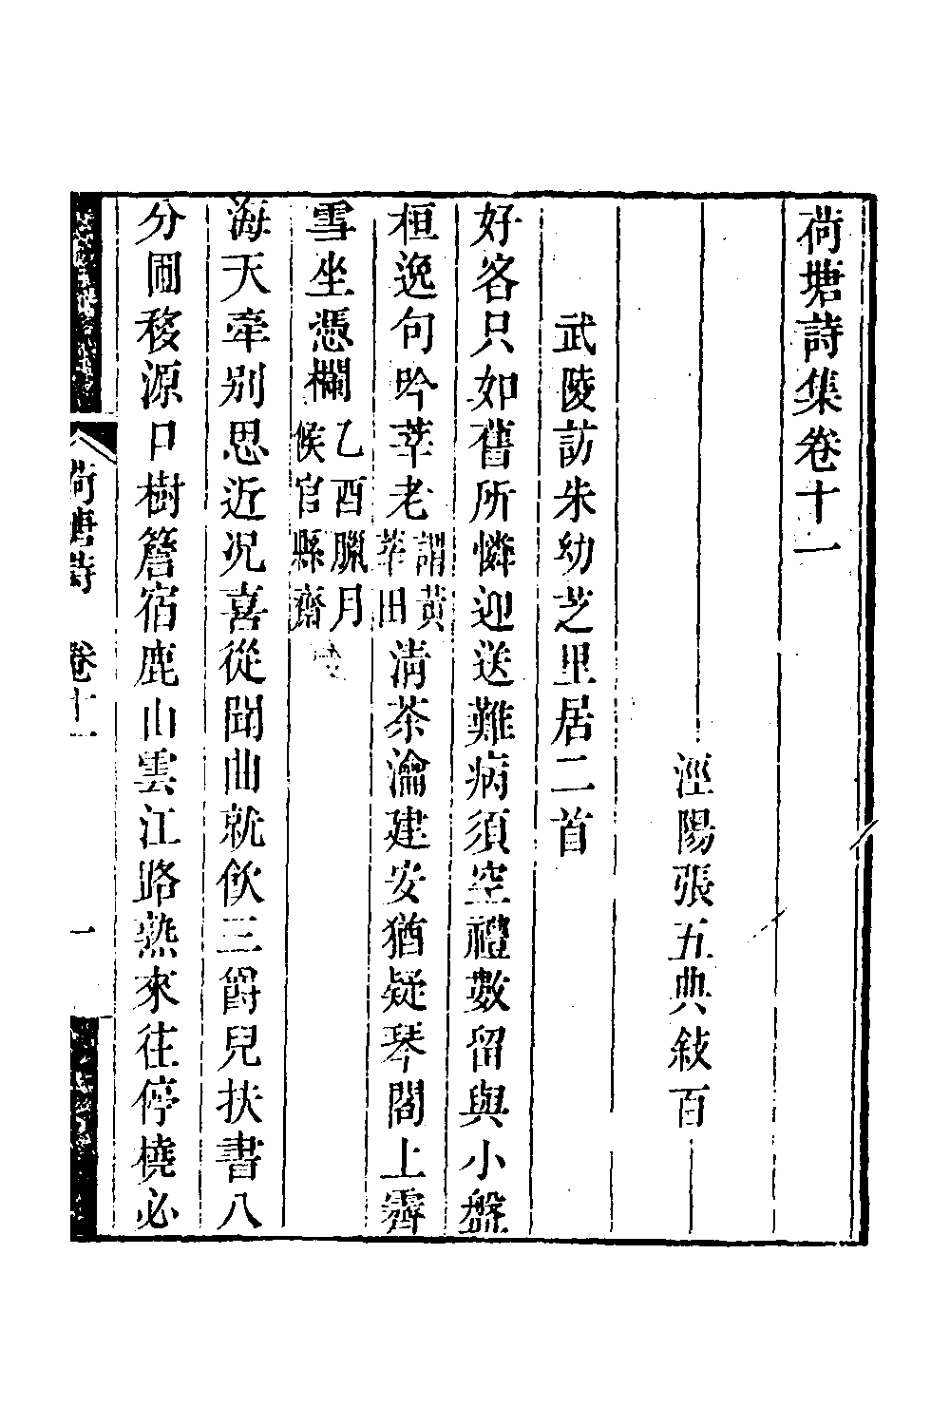 荷塘詩集卷十一
涇陽張五典敍百
武陵訪朱幼芝里居二首
好客只如舊所憐迎送難病須空禮數留與小盤
桓逸句吟莘老謂黃莘田淸茶瀹建安猶疑琴閣上霽
雪坐憑欄乙酉臘月候官縣齋
海天牽别思近况喜從聞曲就飲三爵兒扶書八
分圃移源口樹簷宿鹿山雲江路熱來往停橈必
荷塘詩 卷十一 一